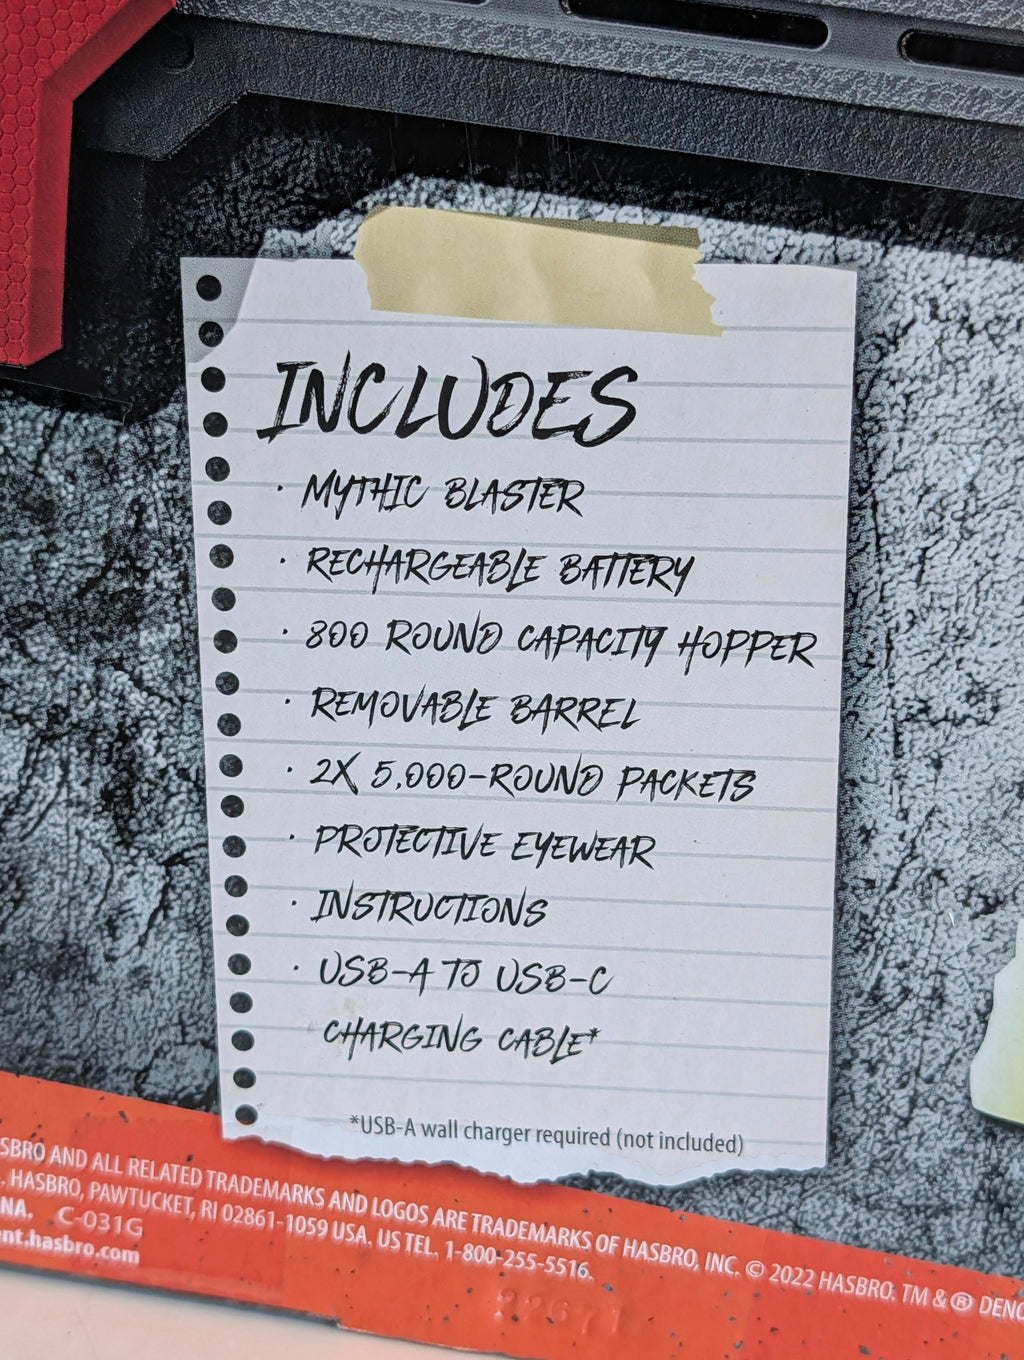 INCLUDES
· MYTHIC BLASTER
· RECHARGEABLE BATTERY
· 800 ROUND CAPACITY HOPPER
· REMOVABLE BARREL
· 2X 5,000-ROUND PACKETS
· PROTECTIVE EYEWEAR
· INSTRUCTIONS
· USB-A TO USB-C
CHARGING CABLE*
*USB-A wall charger required (not included)
SBRO AND ALL RELATED TRADEMARKS AND LOGOS ARE TRADEMARKS OF HASBRO, INC. © 2022 HASBRO. TM & ® DENO
, HASBRO, PAWTUCKET, RI 02861-1059 USA. US TEL. 1-800-255-5516.
NA. C-031G
nt.hasbro.com